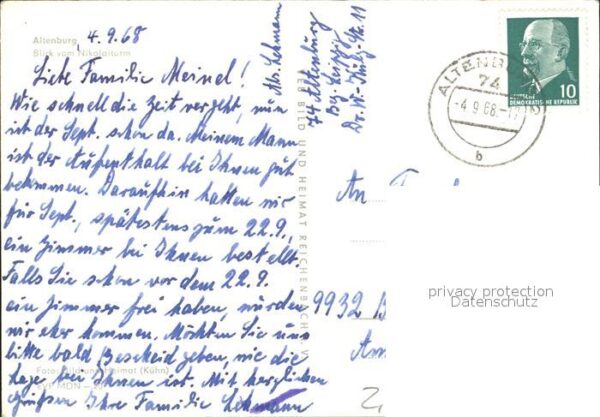 Altenburg
Blick vom Nikolaiturm
4.9.68
Liebe Familie Meinel!
Wie schnell die Zeit vergeht, nun
ist der Sept. schon da. Meinem Mann
ist der Aufenthalt bei Ihnen gut
bekommen. Daraufhin hatten wir
für Sept., spätestens zum 22.9.,
ein Zimmer bei Ihnen bestellt.
Falls Sie schon vor dem 22.9.
ein Zimmer frei haben, würden
wir eher kommen. Möchten Sie uns
bitte bald Bescheid geben, wie die
Lage bei Ihnen ist. Mit herzlichen
Grüßen Ihre Familie Lehmann
Foto: Bild und Heimat (Kühn)
Abs. Lehmann
74 Altenburg
Bz. Leipzig
BILD UND HEIMAT REICHENBACH
ALTENBURG
74
-4.9.68.-17
b
10
DEUTSCHE
DEMOKRATISCHE REPUBLIK
An
9932
privacy protection
Datenschutz